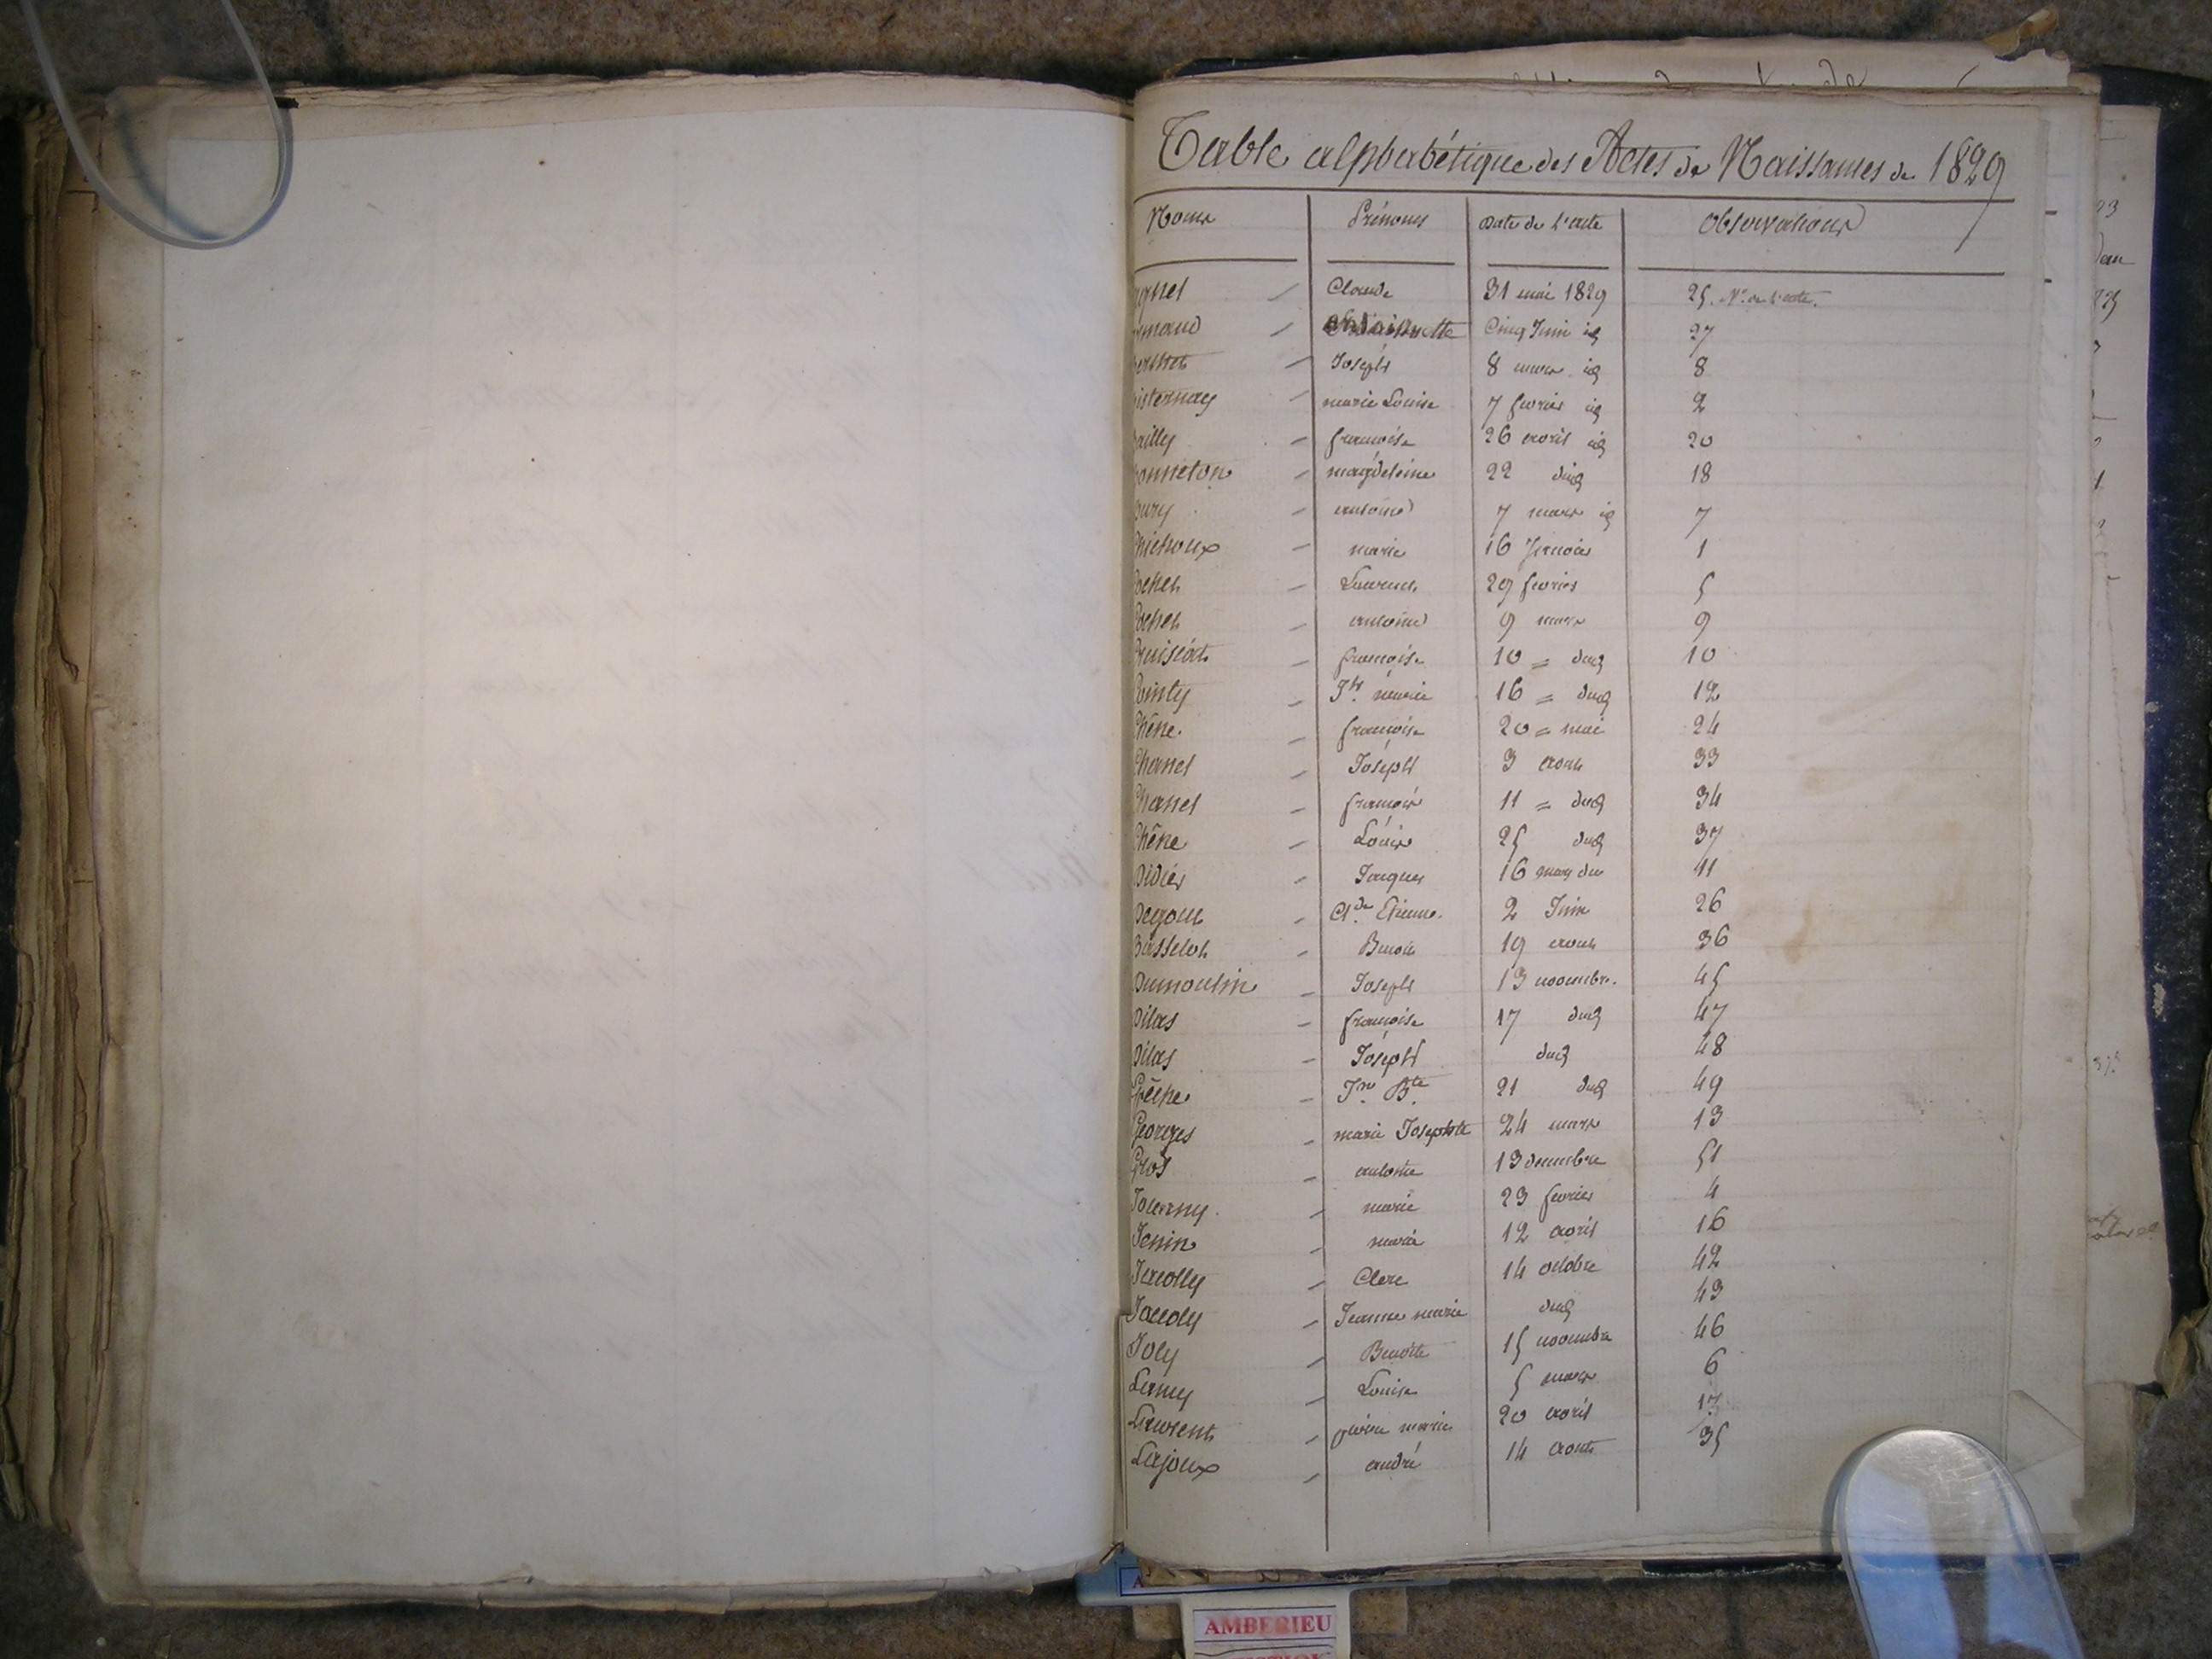 Table alphabétique des Actes de Naissances de 1829
Noms Prénoms Date de l'acte Observations
Claude 31 mai 1829 25. N.° de l'acte.
Cinq Juin id 27
Joseph 8 mars id 8
marie Louise 7 fevrier id 2
françoise 26 avril id 20
onneton magdeleine 22 dud 18
ury antoine 7 mars id 7
marie 16 Janvier 1
Laurent 29 fevrier 5
antoine 9 mars 9
françoise 10 = dud 10
Jh. marie 16 = dud 12
Chêne. françoise 20 = mai 24
Chanel Joseph 3 aout 33
Chanel françois 11 = dud 34
Chêne Louis 25 dud 37
Didier Jacques 16 mars du 11
Cl.de Etienne. 2 Juin 26
Benoit 19 aout 36
Dumoulin Joseph 13 novembre. 45
Dilas françoise 17 dud 47
Dilas Joseph dud 48
Jn. Bte. 21 dud 49
Georges marie Josephte 24 mars 13
Gros antoine 13 decembre 51
marie 23 fevrier 4
Jenin marie 12 avril 16
Clere 14 octobre 42
Jeanne marie dud 43
Joly Benoite 15 novembre 46
Lamy Louise 5 mars 6
Laurent pierre marie 20 avril 17
Lajoux andré 14 aout 35
AMBERIEU